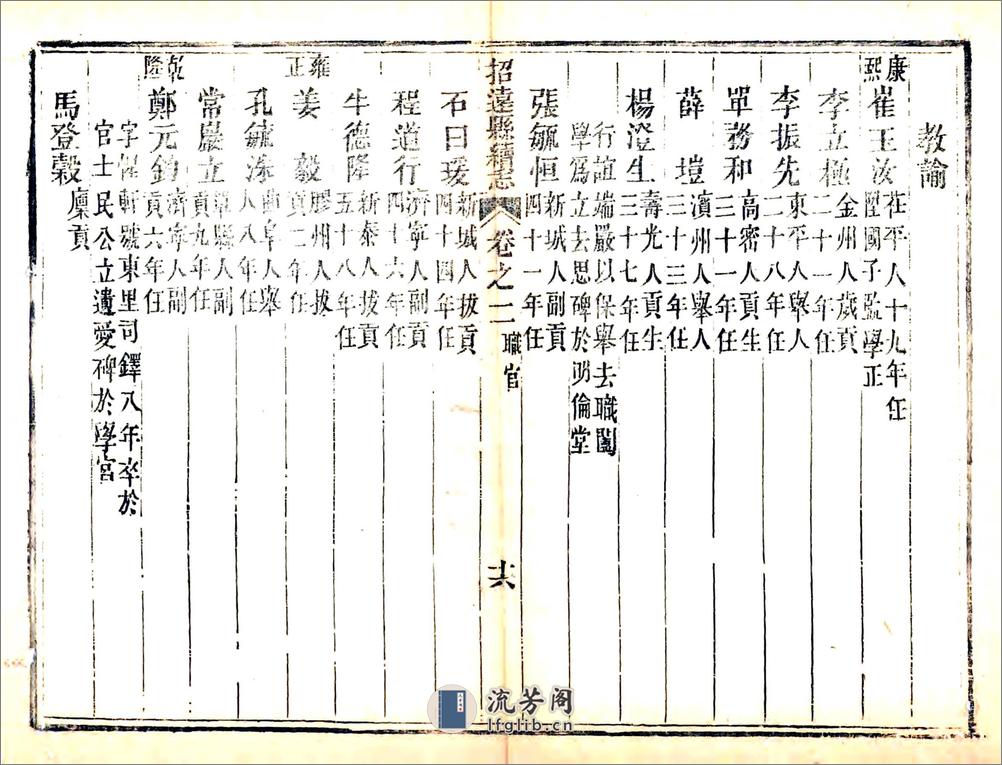 教諭
康熙
崔王汝
茌平人十九年任
陞國子監學正
李立極
金州人歲貢
二十一年任
李振先
東平人舉人
二十八年任
單務和
高密人貢生
三十一年任
薛塏
濱州人舉人
三十三年任
楊澄生
壽光人貢生
三十七年任
行誼端嚴以保舉去職闔
學爲立去思碑於明倫堂
張毓恒
新城人副貢
四十一年任
招遠縣續志
卷之二
職官
十六
石曰琰
新城人拔貢
四十四年任
程道行
濟寧人副貢
四十六年任
牛德隆
新泰人拔貢
五十八年任
雍正
姜毅
膠州人拔
貢二年任
孔毓洙
曲阜人舉
人八年任
常巖立
單縣人副
貢九年任
乾隆
鄭元鈞
濟寧人副
貢六年任
字惺軒號東里司鐸八年卒於
官士民公立遺愛碑於學宮
馬登穀
廩貢
流芳阁
lfglib.cn